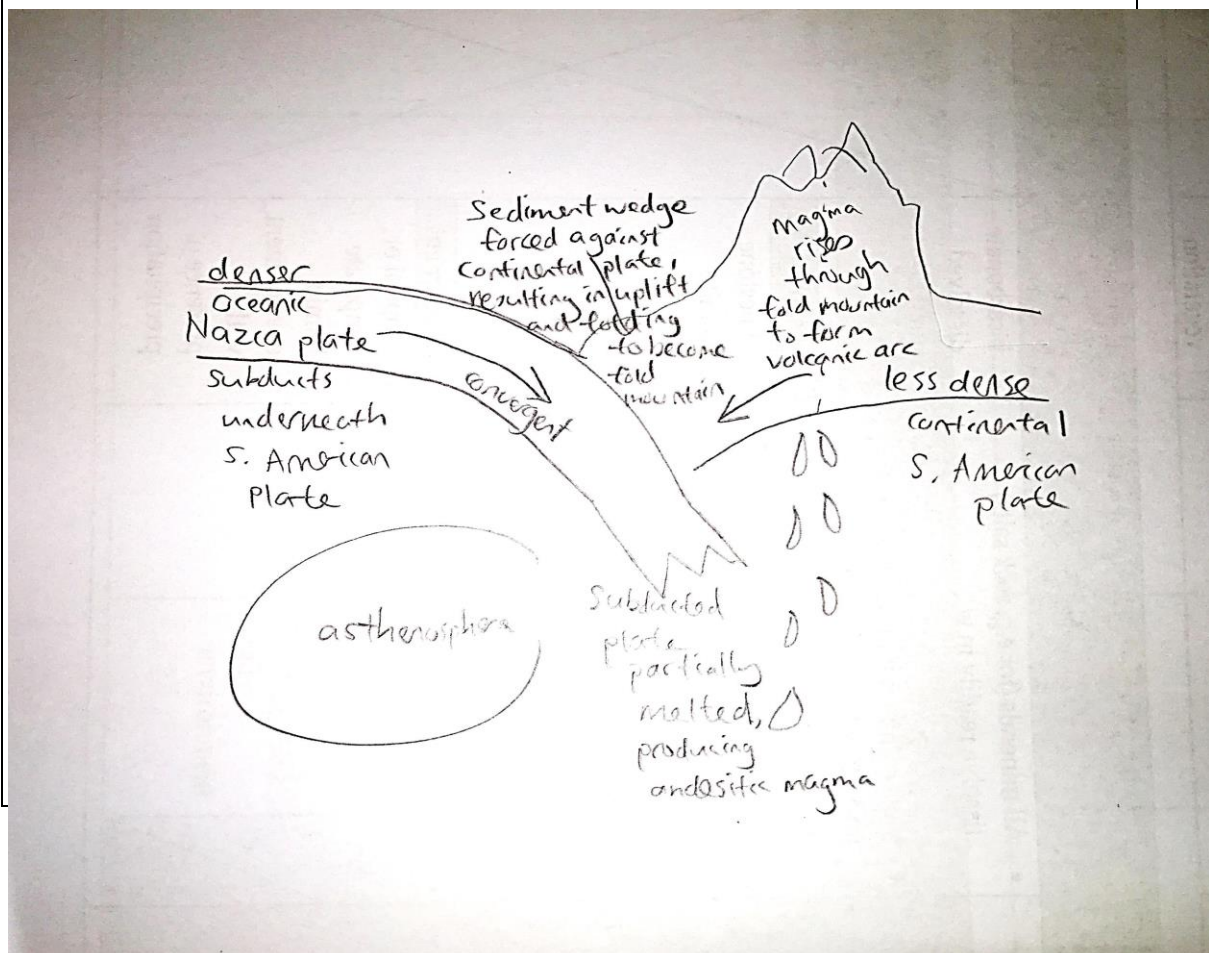 Sediment wedge
forced against
continental plate,
resulting in uplift
and folding
to become
fold
mountain
magma
rises
through
fold mountain
to form
volcanic arc
denser
oceanic
Nazca plate
subducts
underneath
S. American
plate
convergent
less dense
continental
S. American
plate
asthenosphere
Subducted
plate
partially
melted,
producing
andesitic magma